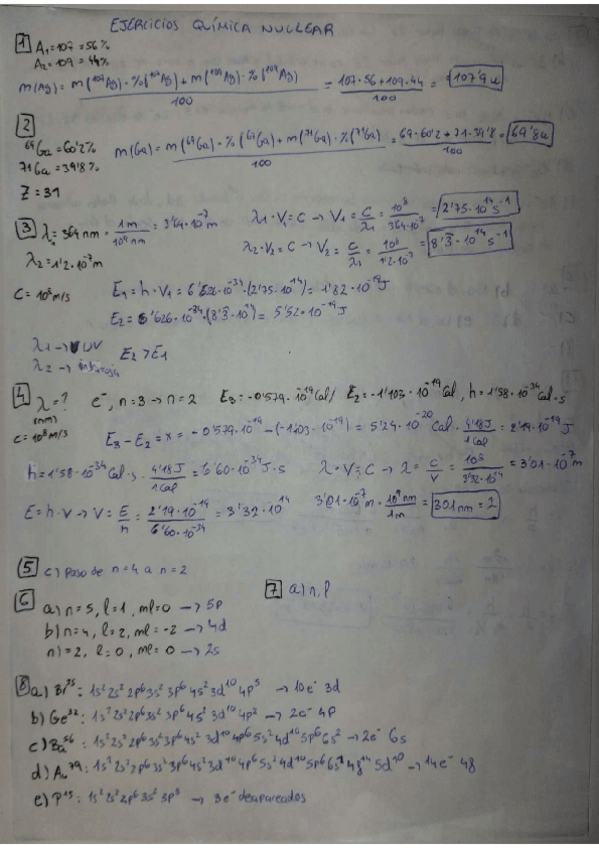 EJERCICIOS QUÍMICA NUCLEAR
1 A₁=107=56%
A₂=109=44%
m(Ag) = m(¹⁰⁷Ag)·%(¹⁰⁷Ag)+m(¹⁰⁹Ag)·%(¹⁰⁹Ag) / 100 = 107·56+109·44 / 100 = 107'9u
2
⁶⁹Ga=60'2%
⁷¹Ga=39'8%
m(Ga) = m(⁶⁹Ga)·%(⁶⁹Ga)+m(⁷¹Ga)·%(⁷¹Ga) / 100 = 69·60'2+71·39'8 / 100 = 69'8u
Z=31
3 λ₁=364nm · 1m / 10⁹nm = 3'64·10⁻⁷m
λ₁·V₁=C → V₁=C/λ₁ = 10⁸ / 364·10⁻⁷ = 2'75·10¹⁴s⁻¹
λ₂=1'2·10⁻⁷m
λ₂·V₂=C → V₂=C/λ₂ = 10⁸ / 1'2·10⁻⁷ = 8'3·10¹⁴s⁻¹
C=10⁸m/s
E₁=h·V₁=6'626·10⁻³⁴·(2'75·10¹⁴)=1'82·10⁻¹⁹J
E₂=6'626·10⁻³⁴·(8'3·10¹⁴)=5'52·10⁻¹⁹J
λ₁→UV
λ₂→
E₂>E₁
4 λ=? (nm)
e⁻, n=3→n=2 E₃=-0'579·10⁻¹⁹Cal/ E₂=-1'103·10⁻¹⁹Cal, h=1'58·10⁻³⁴Cal·s
C=10⁸m/s
E₃-E₂=x=-0'579·10⁻¹⁹-(-1'103·10⁻¹⁹)=5'24·10⁻²⁰Cal·4'18J / 1Cal=2'19·10⁻¹⁹J
h=1'58·10⁻³⁴Cal·s·4'18J / 1Cal=6'60·10⁻³⁴J·s
λ·V=C→λ=C/V=10⁸ / 3'32·10¹⁴=3'01·10⁻⁷m
E=h·V→V=E/h=2'19·10⁻¹⁹ / 6'60·10⁻³⁴=3'32·10¹⁴
3'01·10⁻⁷m·10⁹nm / 1m=301nm=λ
5 c) Paso de n=4 a n=2
6
7 a) n, l
a) n=5, l=1, ml=0 → 5p
b) n=4, l=2, ml=-2 → 4d
n)=2, l=0, ml=0 → 2s
8 a) Br³⁵: 1s²2s²2p⁶3s²3p⁶4s²3d¹⁰4p⁵ → 10e⁻ 3d
b) Ge³²: 1s²2s²2p⁶3s²3p⁶4s²3d¹⁰4p² → 2e⁻ 4p
c) Ba⁵⁶: 1s²2s²2p⁶3s²3p⁶4s²3d¹⁰4p⁶5s²4d¹⁰5p⁶6s² → 2e⁻ 6s
d) Au⁷⁹: 1s²2s²2p⁶3s²3p⁶4s²3d¹⁰4p⁶5s²4d¹⁰5p⁶6s¹4f¹⁴5d¹⁰ → 14e⁻ 4f
e) P¹⁵: 1s²2s²2p⁶3s²3p³ → 3e⁻ desapareados